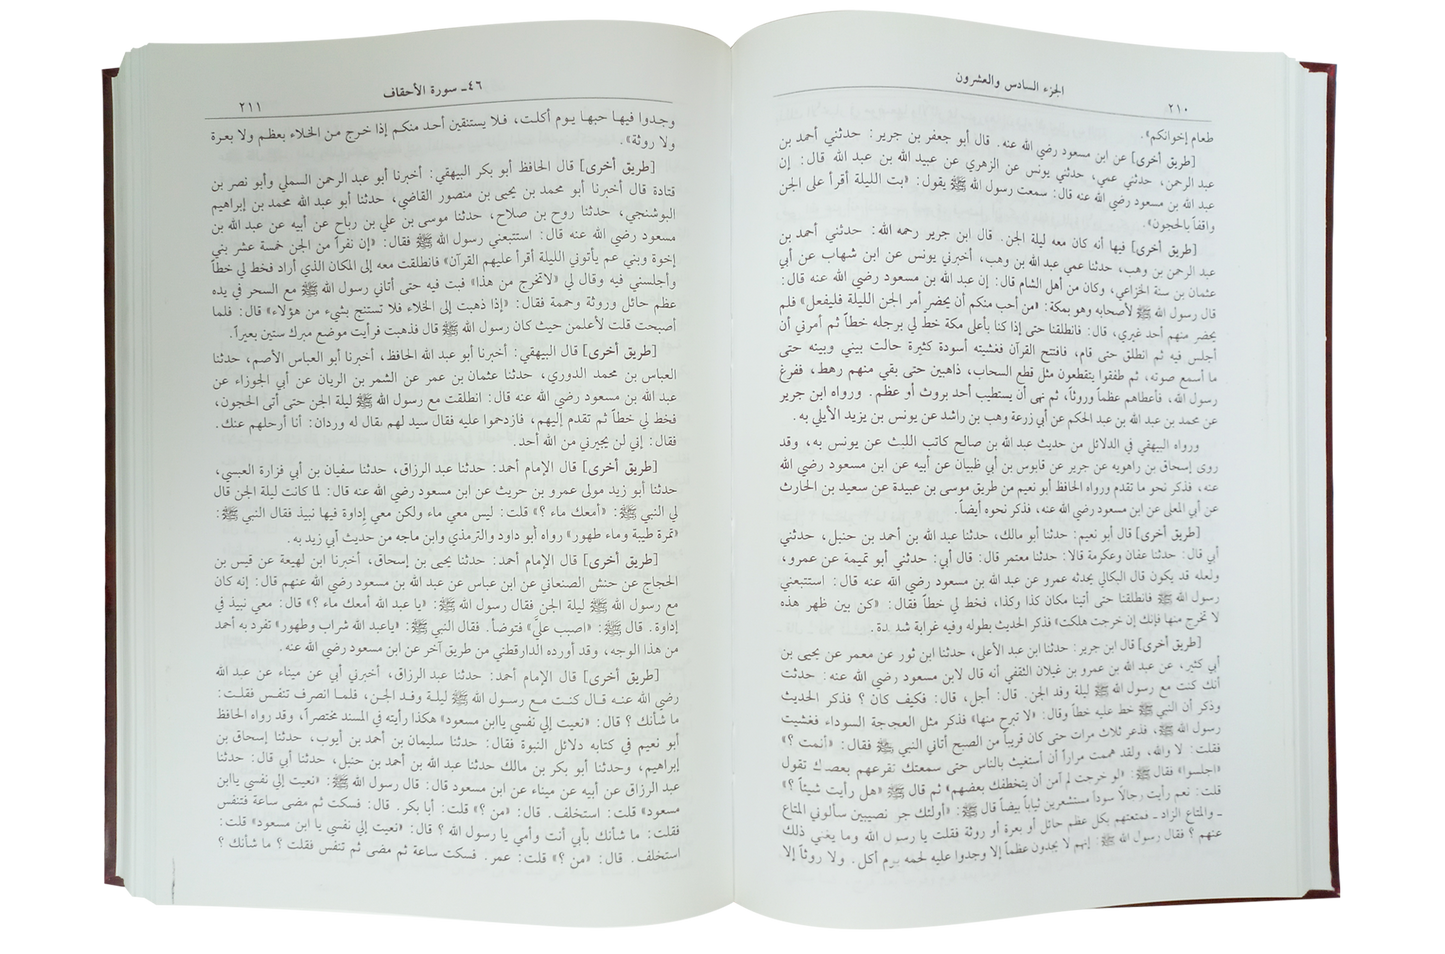 ٢١٠
الجزء السادس والعشرون
طعام إخوانكم».
[طريق أخرى] عن ابن مسعود رضي الله عنه. قال أبو جعفر بن جرير: حدثني أحمد بن
عبد الرحمن، حدثني عمي، حدثني يونس عن الزهري عن عبيد الله بن عبد الله قال: إن
عبد الله بن مسعود رضي الله عنه قال: سمعت رسول الله ﷺ يقول: «بت الليلة أقرأ على الجن
واقفاً بالحجون».
[طريق أخرى] فيها أنه كان معه ليلة الجن. قال ابن جرير رحمه الله: حدثني أحمد بن
عبد الرحمن بن وهب، حدثنا عمي عبد الله بن وهب، أخبرني يونس عن ابن شهاب عن أبي
عثمان بن سنة الخزاعي، وكان من أهل الشام قال: إن عبد الله بن مسعود رضي الله عنه قال:
قال رسول الله ﷺ لأصحابه وهو بمكة: «من أحب منكم أن يحضر أمر الجن الليلة فليفعل» فلم
يحضر منهم أحد غيري، قال: فانطلقنا حتى إذا كنا بأعلى مكة خطّ لي برجله خطاً ثم أمرني أن
أجلس فيه ثم انطلق حتى قام، فافتتح القرآن فغشيته أسودة كثيرة حالت بيني وبينه حتى
ما أسمع صوته، ثم طفقوا يتقطعون مثل قطع السحاب، ذاهبين حتى بقي منهم رهط، ففرغ
رسول الله، فأعطاهم عظماً وروثاً، ثم نهى أن يستطيب أحد بروث أو عظم. ورواه ابن جرير
عن محمد بن عبد الله بن عبد الحكم عن أبي زرعة وهب بن راشد عن يونس بن يزيد الأيلي به.
ورواه البيهقي في الدلائل من حديث عبد الله بن صالح كاتب الليث عن يونس به، وقد
روى إسحاق بن راهويه عن جرير عن قابوس بن أبي ظبيان عن أبيه عن ابن مسعود رضي الله
عنه، فذكر نحو ما تقدم ورواه الحافظ أبو نعيم من طريق موسى بن عبيدة عن سعيد بن الحارث
عن أبي المعلى عن ابن مسعود رضي الله عنه، فذكر نحوه أيضاً.
[طريق أخرى] قال أبو نعيم: حدثنا أبو مالك، حدثنا عبد الله بن أحمد بن حنبل، حدثني
أبي قال: حدثنا عفان وعكرمة قالا: حدثنا معتمر قال: قال أبي: حدثني أبو تميمة عن عمرو،
ولعله قد يكون قال البكالي يحدثه عمرو عن عبد الله بن مسعود رضي الله عنه قال: استتبعني
رسول الله ﷺ فانطلقنا حتى أتينا مكان كذا وكذا، فخط لي خطاً فقال: «كن بين ظهر هذه
لا تخرج منها فإنك إن خرجت هلكت» فذكر الحديث بطوله وفيه غرابة شديدة.
[طريق أخرى] قال ابن جرير: حدثنا ابن عبد الأعلى، حدثنا ابن ثور عن معمر عن يحيى بن
أبي كثير، عن عبد الله بن عمرو بن غيلان الثقفي أنه قال لابن مسعود رضي الله عنه: حدثت
أنك كنت مع رسول الله ﷺ ليلة وفد الجن. قال: أجل، قال: فكيف كان ؟ فذكر الحديث
وذكر أن النبي ﷺ خط عليه خطاً وقال: «لا تبرح منها» فذكر مثل العجاجة السوداء فغشيت
رسول الله ﷺ، فذعر ثلاث مرات حتى كان قريباً من الصبح أتاني النبي ﷺ فقال: «أنمت ؟»
فقلت: لا والله، ولقد هممت مراراً أن أستغيث بالناس حتى سمعتك تقرعهم بعصاك تقول
«اجلسوا» فقال ﷺ: «لو خرجت لم آمن أن يتخطفك بعضهم» ثم قال ﷺ «هل رأيت شيئاً ؟»
قلت: نعم رأيت رجالاً سوداً مستشعرين ثياباً بيضاً قال ﷺ: «أولئك جن نصيبين سألوني المتاع
ـ والمتاع الزاد ـ فمتعتهم بكل عظم حائل أو بعرة أو روثة فقلت يا رسول الله وما يغني ذلك
عنهم ؟ فقال رسول الله ﷺ: إنهم لا يجدون عظماً إلا وجدوا عليه لحمه يوم أكل. ولا روثاً إلا
٤٦ـ سورة الأحقاف
٢١١
وجدوا فيها حبها يوم أكلت، فلا يستنقين أحد منكم إذا خرج من الخلاء بعظم ولا بعرة
ولا روثة».
[طريق أخرى] قال الحافظ أبو بكر البيهقي: أخبرنا أبو عبد الرحمن السملي وأبو نصر بن
قتادة قال أخبرنا أبو محمد بن يحيى بن منصور القاضي، حدثنا أبو عبد الله محمد بن إبراهيم
البوشنجي، حدثنا روح بن صلاح، حدثنا موسى بن علي بن رباح عن أبيه عن عبد الله بن
مسعود رضي الله عنه قال: استتبعني رسول الله ﷺ فقال: «إن نفراً من الجن خمسة عشر بني
إخوة وبني عم يأتوني الليلة أقرأ عليهم القرآن» فانطلقت معه إلى المكان الذي أراد فخط لي خطاً
وأجلسني فيه وقال لي «لاتخرج من هذا» فبت فيه حتى أتاني رسول الله ﷺ مع السحر في يده
عظم حائل وروثة وحممة فقال: «إذا ذهبت إلى الخلاء فلا تستنج بشيء من هؤلاء» قال: فلما
أصبحت قلت لأعلمن حيث كان رسول الله ﷺ قال فذهبت فرأيت موضع مبرك ستين بعيراً.
[طريق أخرى] قال البيهقي: أخبرنا أبو عبد الله الحافظ، أخبرنا أبو العباس الأصم، حدثنا
العباس بن محمد الدوري، حدثنا عثمان بن عمر عن الشمر بن الريان عن أبي الجوزاء عن
عبد الله بن مسعود رضي الله عنه قال: انطلقت مع رسول الله ﷺ ليلة الجن حتى أتى الحجون،
فخط لي خطاً ثم تقدم إليهم، فازدحموا عليه فقال سيد لهم يقال له وردان: أنا أرحلهم عنك.
فقال: إني لن يجيرني من الله أحد.
[طريق أخرى] قال الإمام أحمد: حدثنا عبد الرزاق، حدثنا سفيان بن أبي فزارة العبسي،
حدثنا أبو زيد مولى عمرو بن حريث عن ابن مسعود رضي الله عنه قال: لما كانت ليلة الجن قال
لي النبي ﷺ: «أمعك ماء ؟» قلت: ليس معي ماء ولكن معي إداوة فيها نبيذ فقال النبي ﷺ:
«تمرة طيبة وماء طهور» رواه أبو داود والترمذي وابن ماجه من حديث أبي زيد به.
[طريق أخرى] قال الإمام أحمد: حدثنا يحيى بن إسحاق، أخبرنا ابن لهيعة عن قيس بن
الحجاج عن حنش الصنعاني عن ابن عباس عن عبد الله بن مسعود رضي الله عنهم قال: إنه كان
مع رسول الله ﷺ ليلة الجن فقال رسول الله ﷺ: «يا عبد الله أمعك ماء ؟» قال: معي نبيذ في
إداوة. قال ﷺ: «اصبب عليَّ» فتوضأ. فقال النبي ﷺ: «ياعبد الله شراب وطهور» تفرد به أحمد
من هذا الوجه، وقد أورده الدارقطني من طريق آخر عن ابن مسعود رضي الله عنه.
[طريق أخرى] قال الإمام أحمد: حدثنا عبد الرزاق، أخبرني أبي عن ميناء عن عبد الله
رضي الله عنه قال كنت مع رسول الله ﷺ ليلة وفد الجن، فلما انصرف تنفس فقلت:
ما شأنك ؟ قال: «نعيت إلي نفسي ياابن مسعود» هكذا رأيته في المسند مختصراً، وقد رواه الحافظ
أبو نعيم في كتابه دلائل النبوة فقال: حدثنا سليمان بن أحمد بن أيوب، حدثنا إسحاق بن
إبراهيم، وحدثنا أبو بكر بن مالك حدثنا عبد الله بن أحمد بن حنبل، حدثنا أبي قال: حدثنا
عبد الرزاق عن أبيه عن ميناء عن ابن مسعود قال: قال رسول الله ﷺ: «نعيت إلي نفسي ياابن
مسعود» قلت: استخلف. قال: «من ؟» قلت: أبا بكر. قال: فسكت ثم مضى ساعة فتنفس
فقلت: ما شأنك بأبي أنت وأمي يا رسول الله ؟ قال: «نعيت إلي نفسي يا ابن مسعود» قلت:
استخلف. قال: «من ؟» قلت: عمر. فسكت ساعة ثم مضى ثم تنفس فقلت ؟ ما شأنك ؟